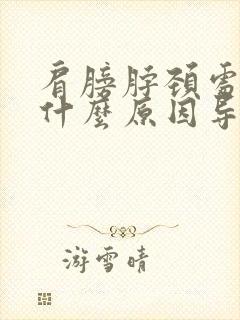 肩膀脖颈
什麼原因导
游雪晴